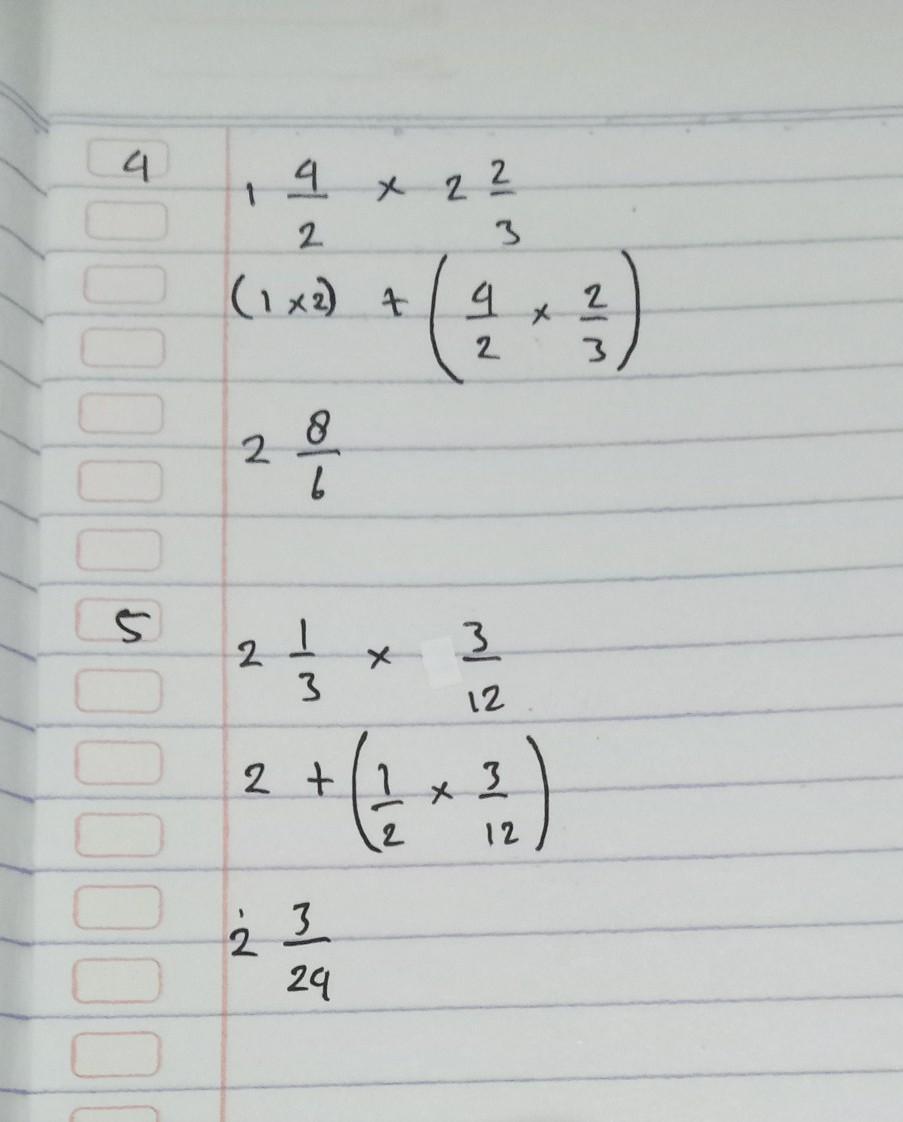 4 1 4/2 × 2 2/3
(1 × 2) + (4/2 × 2/3)
2 8/6
5 2 1/3 × 3/12
2 + (1/2 × 3/12)
2 3/24